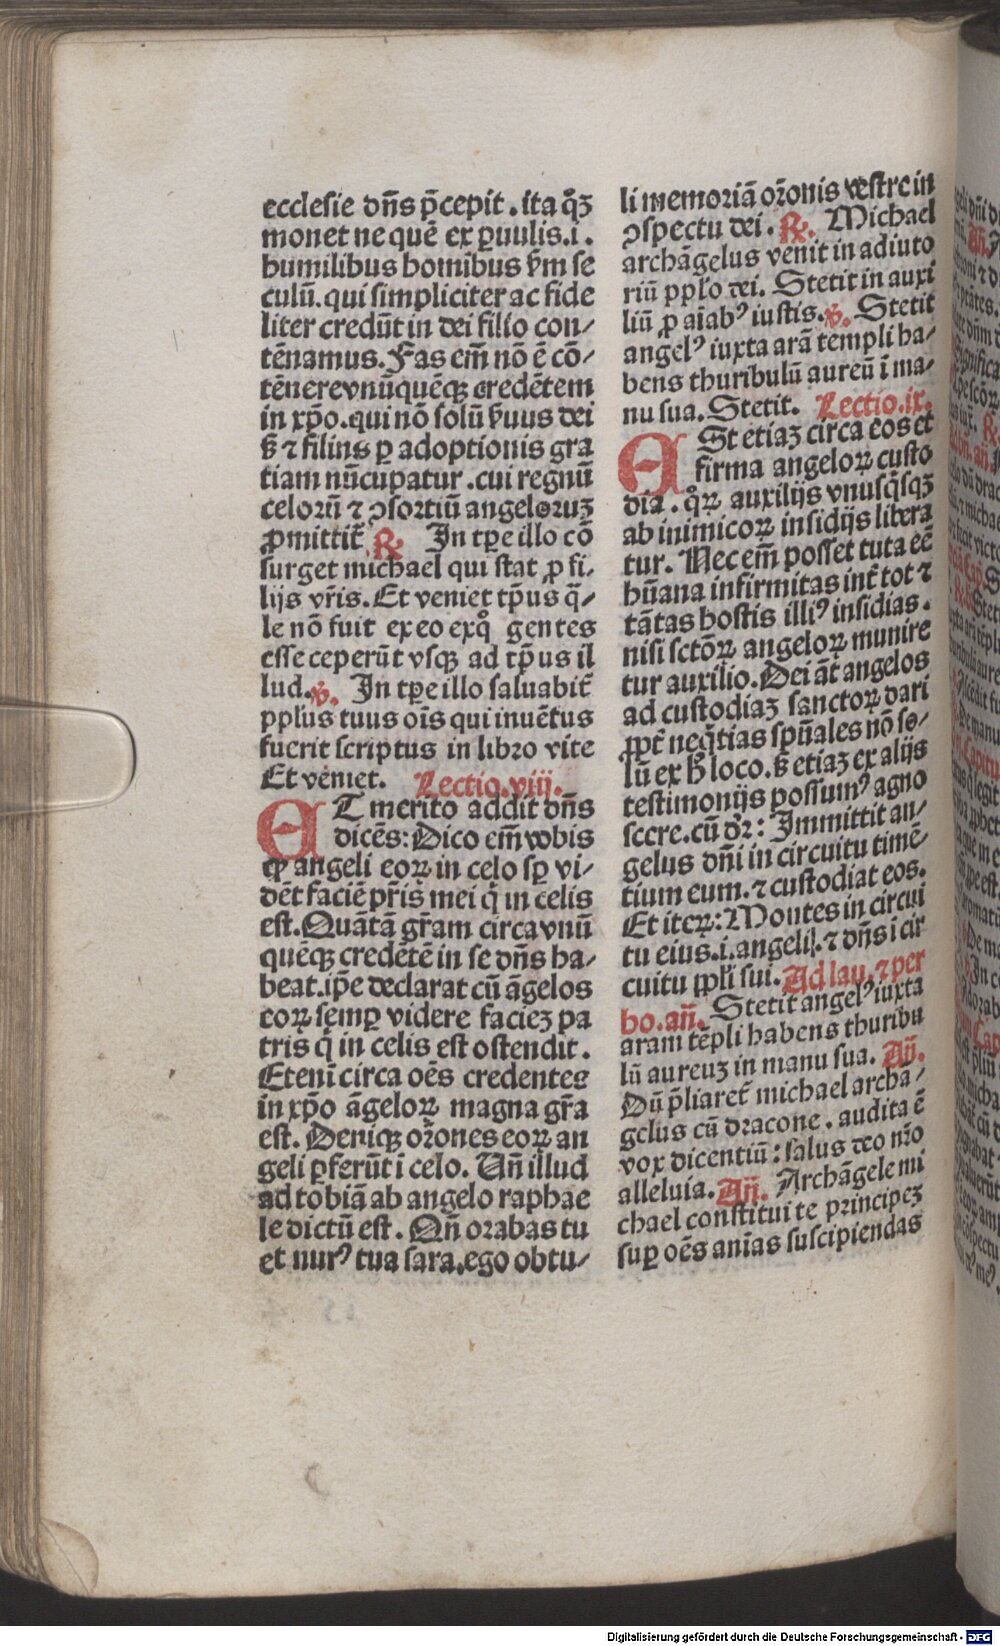 ecclesie dn̄s p̄cepit . ita qͦꝫ
monet ne quē ex ꝑuulis.i.
humilibus homībus ꝟm se
culū. qui simpliciter ac fide
liter credūt in dei filio con/
tēnamus. Fas em̄ nō ē cō/
tēnere vnūquēqꝫ credētem
in xp̄o. qui nō solū ẜuus dei
ẜꝫ ⁊ filius ꝑ adoptionis gra
tiam nūcupatur . cui regnū
celorū ⁊ ꝯsortiū angeloruꝫ
ꝓmittit̄ ℟ In tꝑe illo cō
surget michael qui stat ꝓ fi-
lijs vr̄is. Et veniet tp̄us q̄/
le nō fuit ex eo ex qͦ gentes
esse ceperūt vsqꝫ ad tp̄us il
lud. ℣. In tꝑe illo saluabit̄
pplu̕s tuus oīs qui inuētus
fuerit scriptus in libro vite
Et veniet. Lectio.viij.
ET merito addit dn̄s
dicēs: Dico em̄ vobis
ꝙ angeli eoꝝ in celo sꝑ vi/
dēt faciē pr̄is mei q̄ in celis
est. Quātā gr̄am circa vnū
quēqꝫ credētē in se dn̄s ha/
beat. ip̄e declarat cū āgelos
eoꝝ semꝑ videre facieꝫ pa
tris q̄ in celis est ostendit .
Etenī circa oēs credentes
in xp̄o āgeloꝝ magna gr̄a
est. Deniqꝫ or̄ones eoꝝ an
geli ꝑferūt ī celo. Un̄ illud
ad tobiā ab angelo raphae
le dictū est . Qn̄ orabas tu
et nurꝰ tua sara. ego obtu/
li memoriā or̄onis vestre in
ꝯspectu dei . ℟. Michael
archāgelus venit in adiuto
riū pplo̕ dei. Stetit in auxi
liū ꝓ aīabꝰ iustis. ℣. Stetit
angelꝰ iuxta arā templi ha-
bens thuribulū aureū ī ma/
nu sua. Stetit. Lectio.ix.
ASt etiaꝫ circa eos et
firma angeloꝝ custo
dia . qͦꝝ auxilijs vnusq̄sqꝫ
ab inimicoꝝ insidijs libera
tur. Nec em̄ posset tuta eē
hūana infirmitas int̄ tot ⁊
tātas hostis illiꝰ insidias .
nisi sctōꝝ angeloꝝ munire
tur auxilio. Dei āt angelos
ad custodiaꝫ sanctoꝝ dari
ꝓpt̄ neq̄tias spūales nō so/
lū ex hͦ loco. ẜꝫ etiaꝫ ex alijs
testimonijs possumꝰ agno
scere. cū dr̄: Immittit an/
gelus dn̄i in circuitu timē/
tium eum. ⁊ custodiat eos.
Et iteꝝ: Montes in circui
tu eius .i. angeli. ⁊ dn̄s ī cir
cuitu ppli̕ sui. Ad lau. ⁊ per
ho. an̄. Stetit angelꝰ iuxta
aram tēpli habens thuribu
lū aureuꝫ in manu sua. An̄.
Dū p̄liaret̄ michael archā/
gelus cū dracone . audita ē
vox dicentiū: salus deo nr̄o
alleluia. An̄. Archāgele mi
chael constitui te principeꝫ
suꝑ oēs anīas suscipiendas
Digitalisierung gefördert durch die Deutsche Forschungsgemeinschaft - DFG